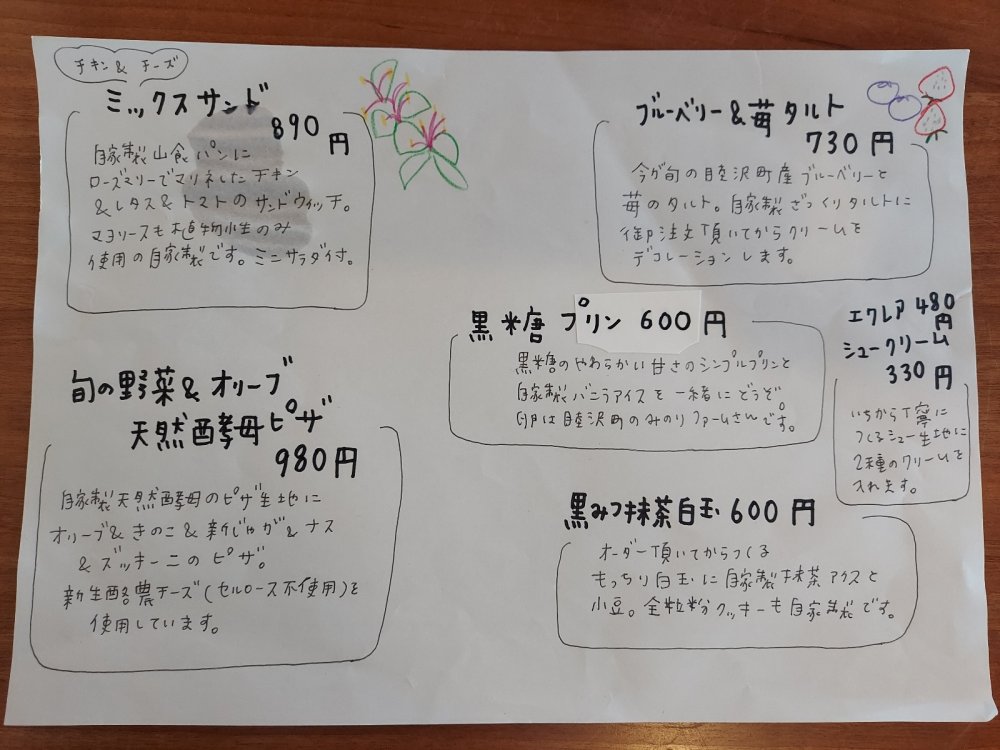 チキン & チーズ
ミックスサンド
890円
自家製山食パンに
ローズマリーでマリネしたチキン
&レタス&トマトのサンドウィッチ。
マヨソースも植物性のみ
使用の自家製です。ミニサラダ付。
旬の野菜&オリーブ
天然酵母ピザ
980円
自家製天然酵母のピザ生地に
オリーブ&きのこ&新じゃが&ナス
&ズッキーニのピザ。
新生酪農チーズ(セルロース不使用)を
使用しています。
ブルーベリー&苺タルト
730円
今が旬の睦沢町産ブルーベリーと
苺のタルト。自家製ざっくりタルトに
御注文頂いてからクリームを
デコレーションします。
黒糖プリン 600円
黒糖のやわらかい甘さのシンプルプリンと
自家製バニラアイスを一緒にどうぞ
卵は睦沢町のみのりファームさんです。
エクレア 480円
シュークリーム
330円
いちから丁寧に
つくるシュー生地に
2種のクリームを
入れます。
黒みつ抹茶白玉 600円
オーダー頂いてからつくる
もっちり白玉に自家製抹茶アイスと
小豆。全粒粉クッキーも自家製です。